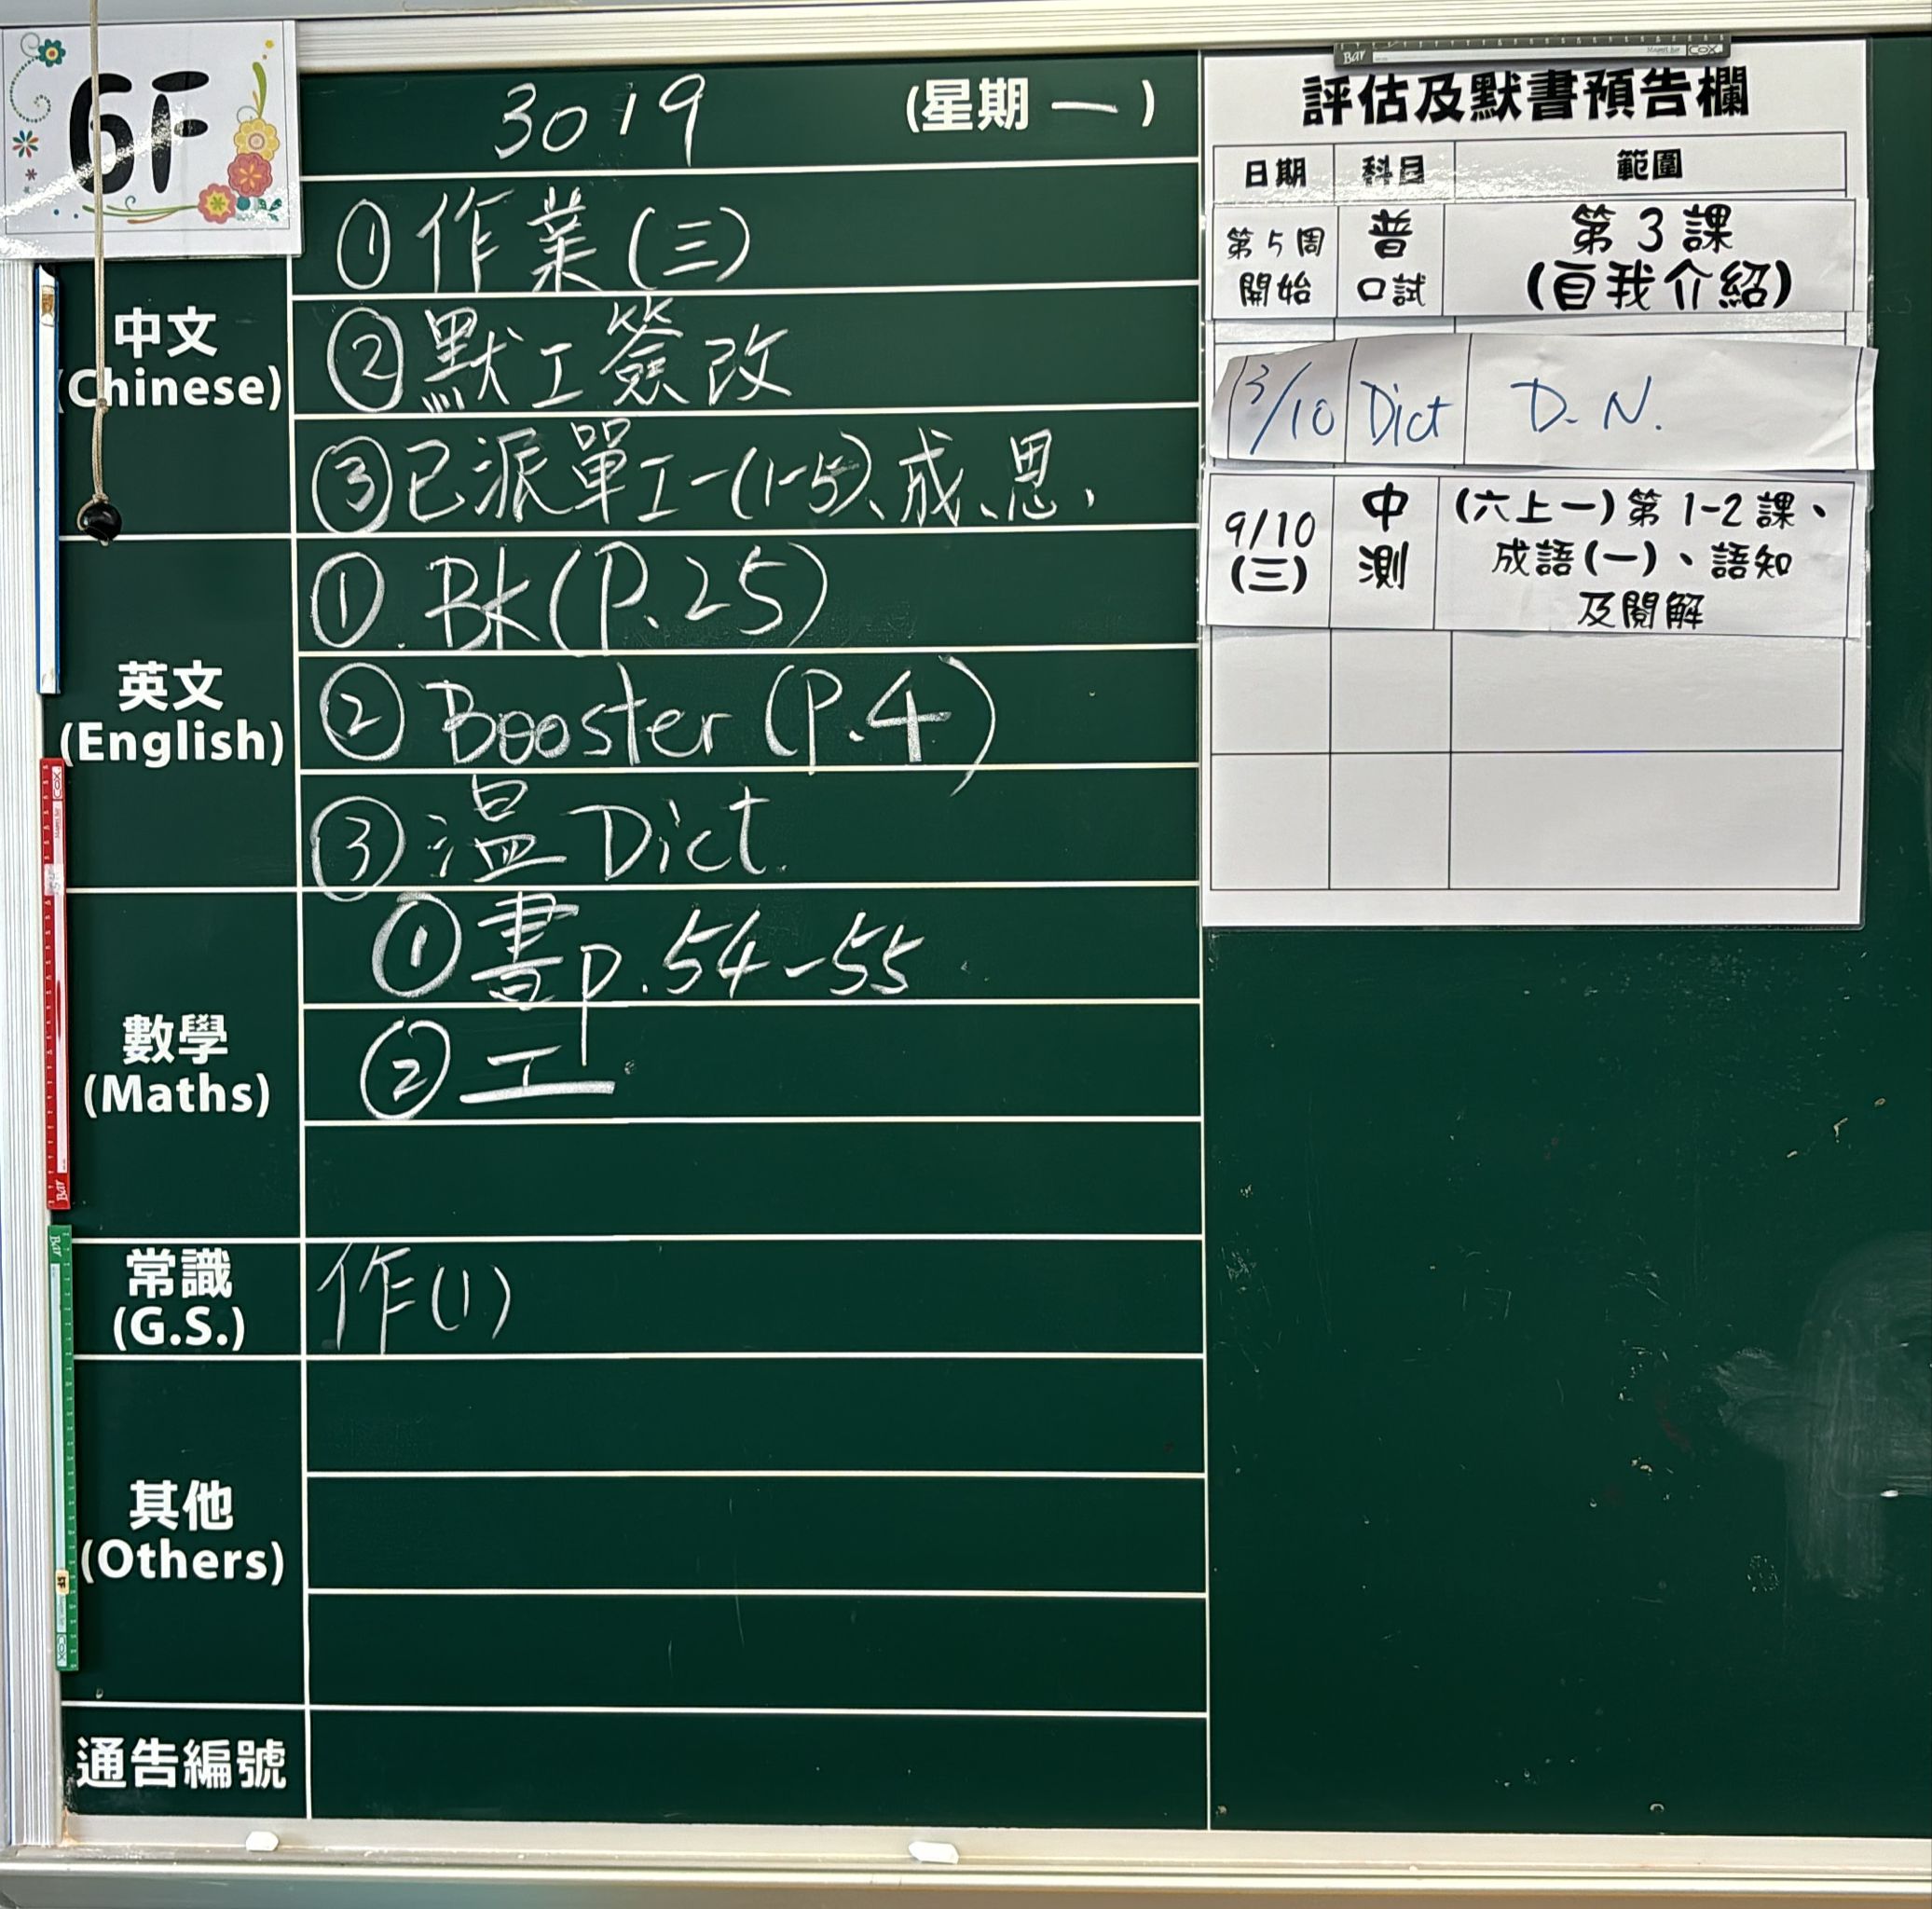 6F
30 19 (星期一)
中文
(Chinese)
①作業(三)
②默工簽改
③已派單工一(1-5)、成、思、
英文
(English)
①. BK(P.25)
② Booster (P.4)
③溫 Dict.
數學
(Maths)
①書p.54-55
②工
常識
(G.S.)
作(1)
其他
(Others)
通告編號
評估及默書預告欄
日期 科目 範圍
第5周開始 普口試 第3課(自我介紹)
3/10 Dict D.N.
9/10(三) 中測 (六上一)第1-2課、
成語(一)、語知
及閱解